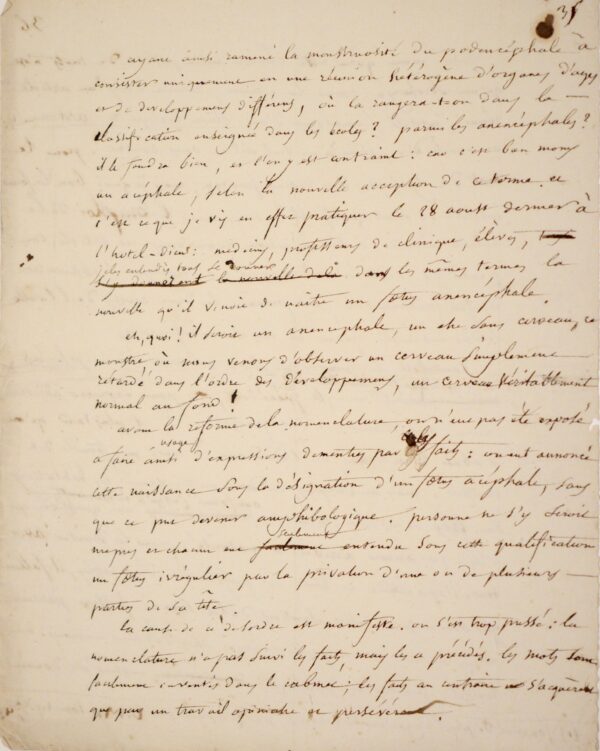 35
ayant ainsi ramené la monstruosité du podencéphale à
consister uniquement en une réunion hétérogène d'organes d'ages
et de developpemens différens, où la rangera-t-on dans la
classification enseignée dans les écoles? parmi les anencéphales?
il le faudra bien, et l'on y est contraint: car c'est bon moins
un acéphale, selon la nouvelle acception de ce terme. et
c'est ce que je vis en effet pratiquer le 28 aoust dernier à
l'hotel-Dieu: medecins, professeurs de clinique, élèves,
je les entendis tous se donner
dans les mêmes termes la
nouvelle qu'il venoit de naitre un fœtus anencéphale.
eh, quoi! il seroit un anencephale, un etre sans cerveau, ce
monstre où nous venons d'observer un cerveau simplement
retardé dans l'ordre des développemens, un cerveau véritablement
normal au fond!
avant la réforme de la nomenclature, on n'eut pas été exposé
a faire ainsi usage d'expressions dementies par les faits: on eut annoncé
cette naissance sous la désignation d'un fœtus acéphale, sans
que ce put devenir amphibologique. personne ne s'y seroit
mepris et chacun eut seulement entendu sous cette qualification
un fœtus irrégulier par la privation d'une ou de plusieurs
parties de sa tête.
la cause de ce desordre est manifeste. on s'est trop pressé: la
nomenclature n'a pas suivi les faits, mais les a précédés. les mots sont
facilement inventés dans le cabinet; les faits au contraire ne s'acquèrent
que par un travail opiniatre et persévérant.